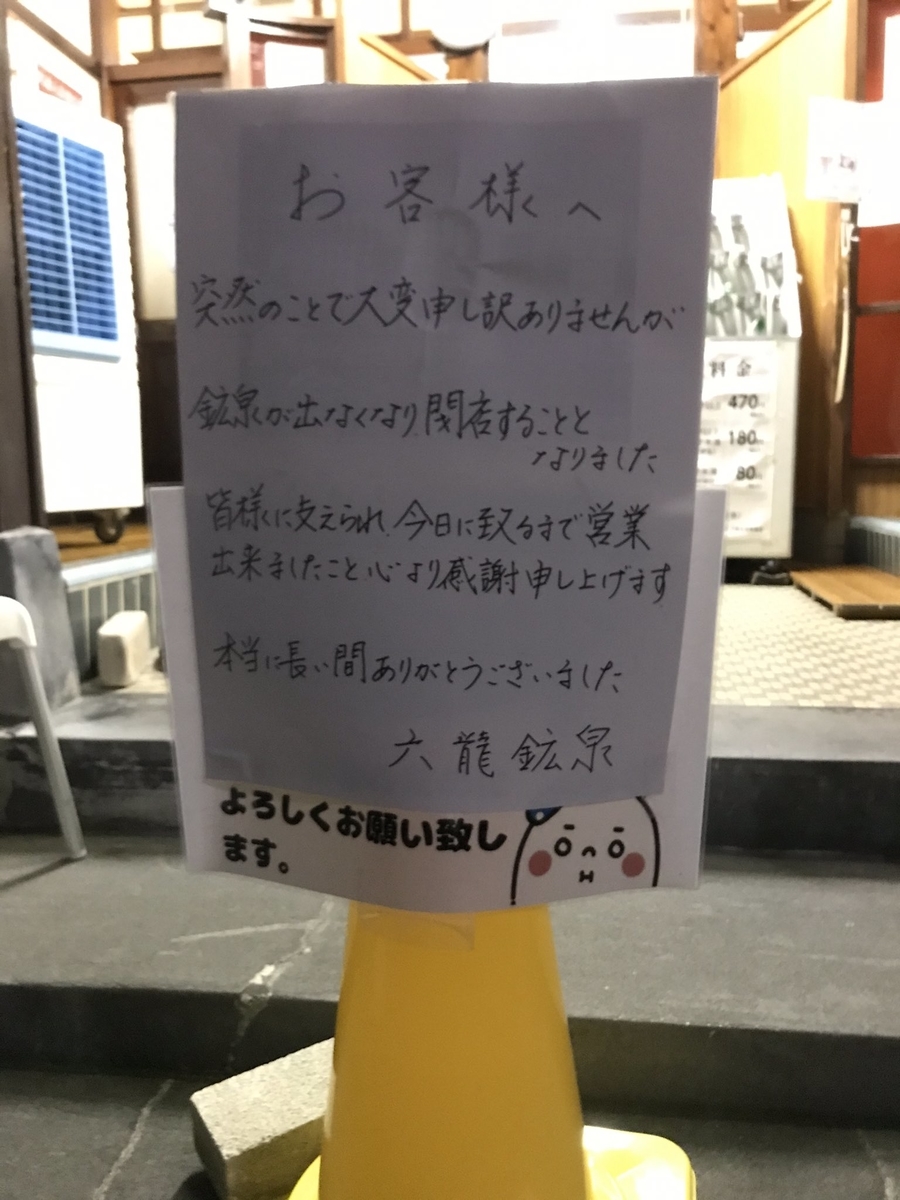 お客様へ
突然のことで大変申し訳ありませんが
鉱泉が出なくなり閉店することと
なりました
皆様に支えられ、今日に致るまで営業
出来ましたこと心より感謝申し上げます
本当に長い間ありがとうございました
六龍鉱泉
よろしくお願い致し
ます。
料金
470
180
80